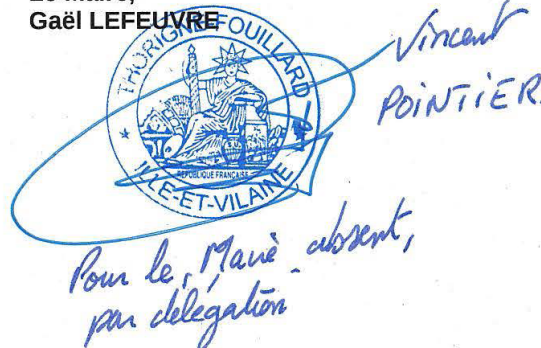 Le Maire,
Gaël LEFEUVRE
THORIGNÉ-FOUILLARD
RÉPUBLIQUE FRANÇAISE
ILLE-ET-VILAINE
Vincent
POINTIER
Pour le Maire absent,
par délégation